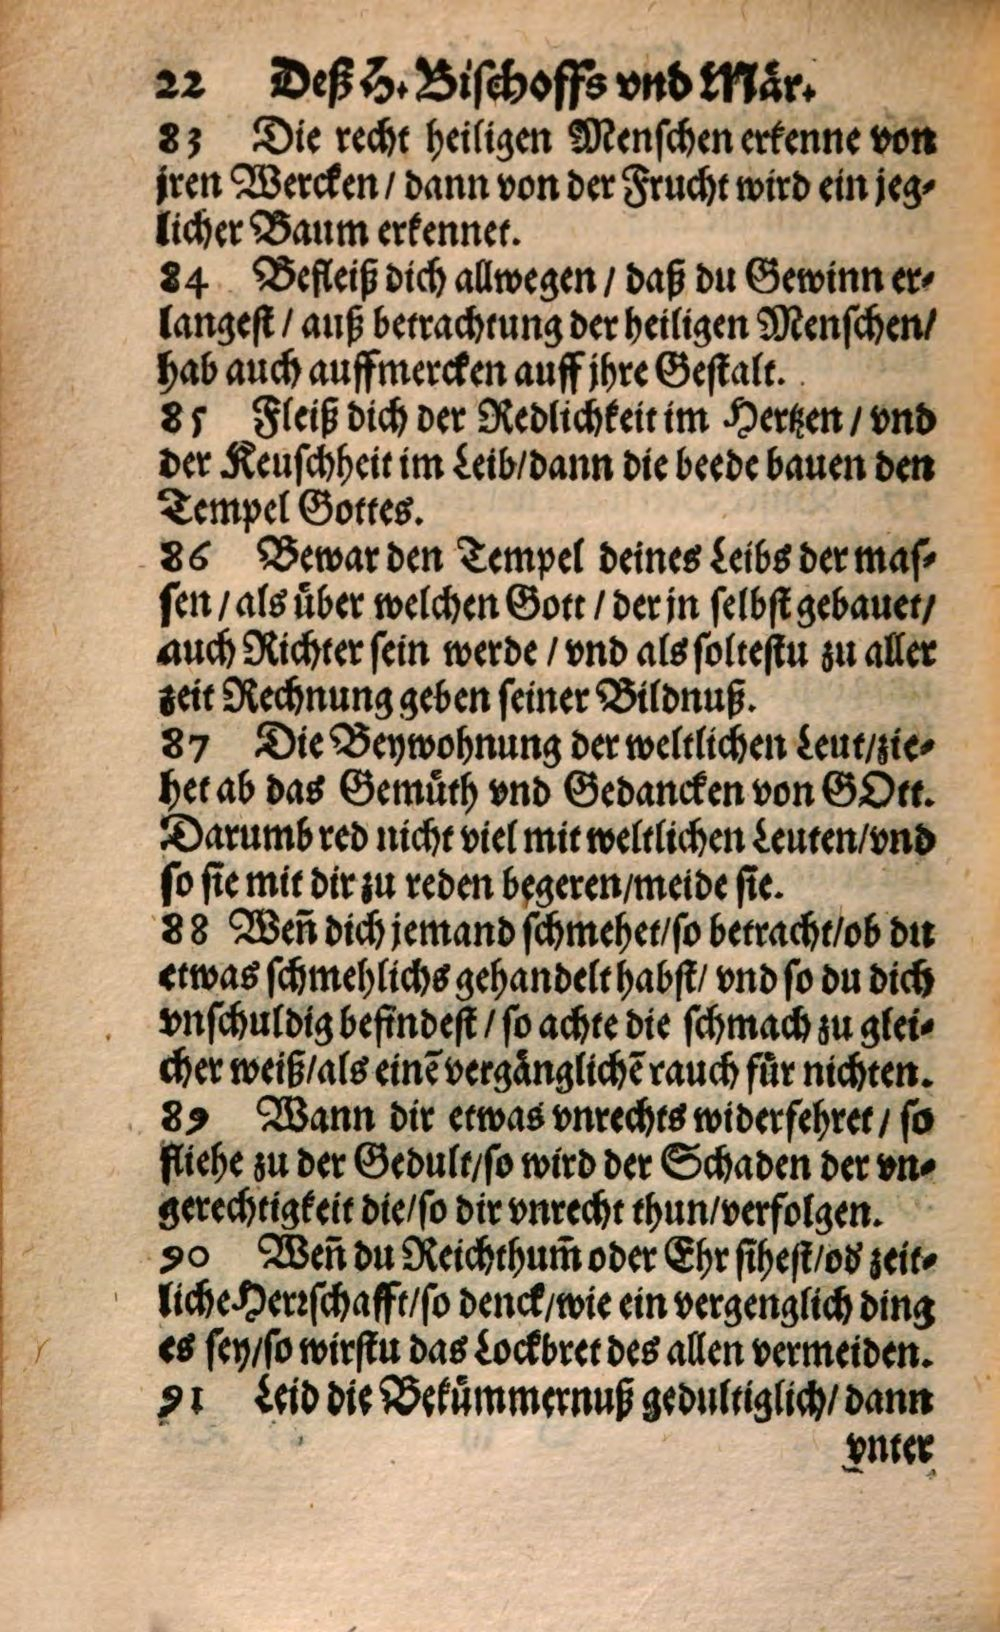 22 Deß H. Bischoffs vnd Mär.
83 Die recht heiligen Menschen erkenne von
jren Wercken / dann von der Frucht wird ein jeg-
licher Baum erkennet.
84 Befleiß dich allwegen / daß du Gewinn er-
langest / auß betrachtung der heiligen Menschen/
hab auch auffmercken auff jhre Gestalt.
85 Fleiß dich der Redlichkeit im Hertzen / vnd
der Keuschheit im Leib/dann die beede bauen den
Tempel Gottes.
86 Bewar den Tempel deines Leibs der mas-
sen / als über welchen Gott / der jn selbst gebauet/
auch Richter sein werde / vnd als soltestu zu aller
zeit Rechnung geben seiner Bildnuß.
87 Die Beywohnung der weltlichen Leut/zie-
het ab das Gemüth vnd Gedancken von GOtt.
Darumb red nicht viel mit weltlichen Leuten/vnd
so sie mit dir zu reden begeren/meide sie.
88 Weñ dich jemand schmehet/so betracht/ob du
etwas schmehlichs gehandelt habst/ vnd so du dich
vnschuldig befindest / so achte die schmach zu glei-
cher weiß/als einẽ vergänglichẽ rauch für nichten.
89 Wann dir etwas vnrechts widerfehret / so
fliehe zu der Gedult/so wird der Schaden der vn-
gerechtigkeit die/so dir vnrecht thun/verfolgen.
90 Weñ du Reichthum̃ oder Ehr sihest/od zeit-
liche Herrschafft/so denck/wie ein vergenglich ding
es sey/so wirstu das Lockbret des allen vermeiden.
91 Leid die Bekümmernuß gedultiglich/ dann
vnter